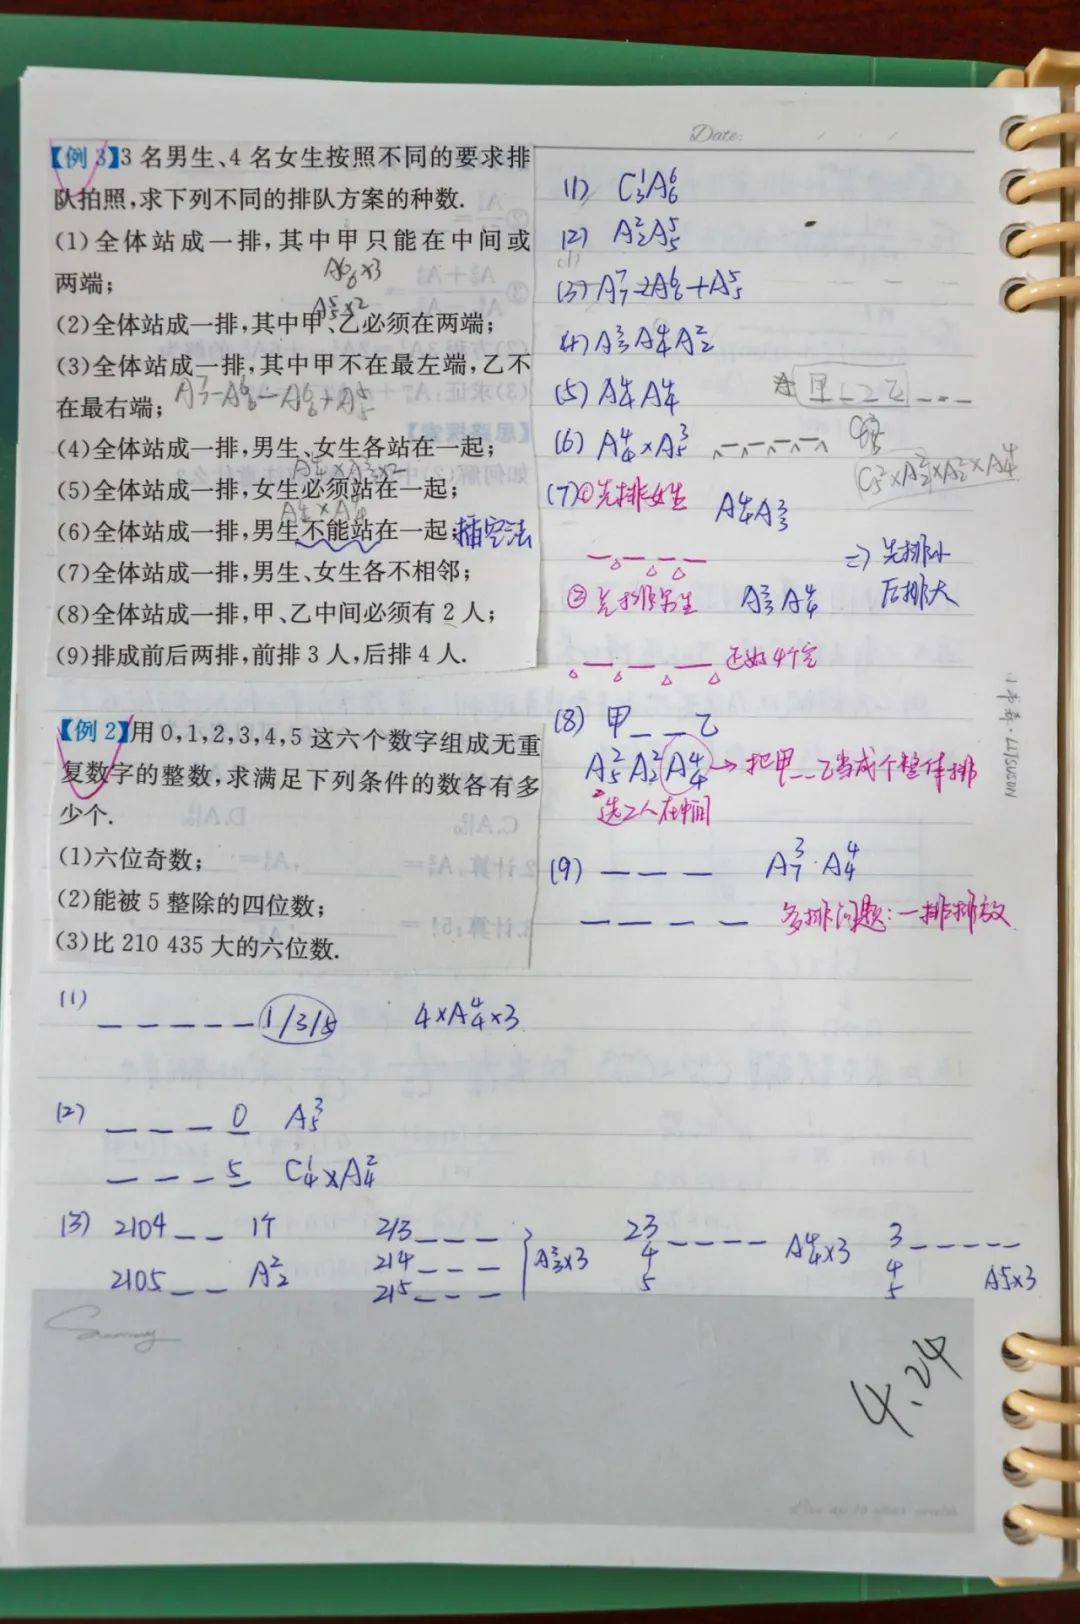 Date: / /
【例3】3名男生、4名女生按照不同的要求排
队拍照,求下列不同的排队方案的种数.
(1)全体站成一排,其中甲只能在中间或
两端;
A⁶₆×3
A⁵₅×2
(2)全体站成一排,其中甲、乙必须在两端;
(3)全体站成一排,其中甲不在最左端,乙不
在最右端;
A⁷₇-A⁶₆-A⁶₆+A⁵₅
(4)全体站成一排,男生、女生各站在一起;
A⁴₄×A³₃×2
(5)全体站成一排,女生必须站在一起;
A⁴₄×A⁴₄
(6)全体站成一排,男生不能站在一起;插空法
(7)全体站成一排,男生、女生各不相邻;
(8)全体站成一排,甲、乙中间必须有2人;
(9)排成前后两排,前排3人,后排4人.
(1) C¹₃A⁶₆
(2) A²₂A⁵₅
(3) A⁷₇-2A⁶₆+A⁵₅
(4) A³₃A⁴₄A²₂
(5) A⁴₄A⁴₄
(6) A⁴₄×A³₅
C²₅×A²₂×A²₂×A⁴₄
(7)①先排女生 A⁴₄A³₃
⇒先排小
后排大
②先排男生 A³₃A⁴₄
正好4个空
(8) 甲_ _乙
A²₅A²₂A⁴₄→把甲_ _乙当成个整体排
选2人在中间
(9) _ _ _ A³₇·A⁴₄
_ _ _ _ 多排问题:一排排放
【例2】用0,1,2,3,4,5这六个数字组成无重
复数字的整数,求满足下列条件的数各有多
少个.
(1)六位奇数;
(2)能被5整除的四位数;
(3)比210 435大的六位数.
(1) _ _ _ _ _ 1/3/5 4×A⁴₄×3
(2) _ _ _ 0 A³₅
_ _ _ 5 C¹₄×A²₄
(3) 2104_ _ 1个
2105_ _ A²₂
213_ _ _
214_ _ _ A³₃×3
215_ _ _
23_ _ _ _ A⁴₄×3
4
5
3_ _ _ _ _ A⁵₅×3
4
5
Sunny
4.24